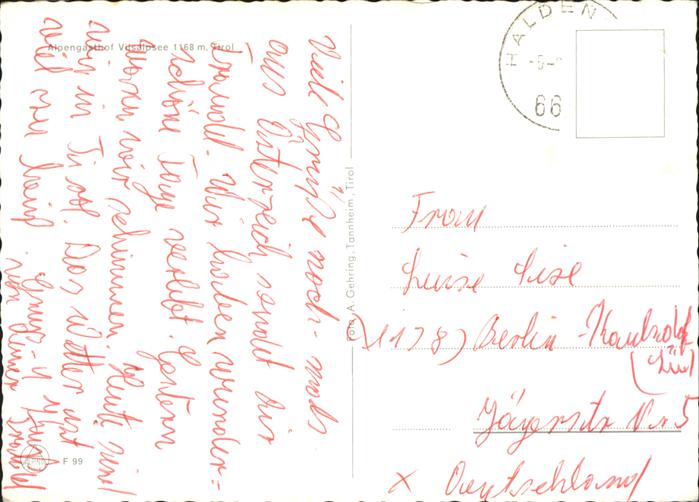 Alpengasthof Vilsalpsee 1168 m, Tirol
Viele Grüße noch-mals
aus Österreich sendet dir
Traudel. Wir haben wunder-
schöne Tage verlebt. Gestern
waren wir schwimmen. Heute sind
wir in Tirol. Das Wetter ist
viel zu heiß.
Gruß u
von deiner Traudel
F 99
Foto A. Gehring, Tannheim, Tirol
HALDEN
66
Frau
Luise Liese
(1178) Berlin-Kaulsdorf
(Süd)
Jägerstr Nr 5
x Deutschland